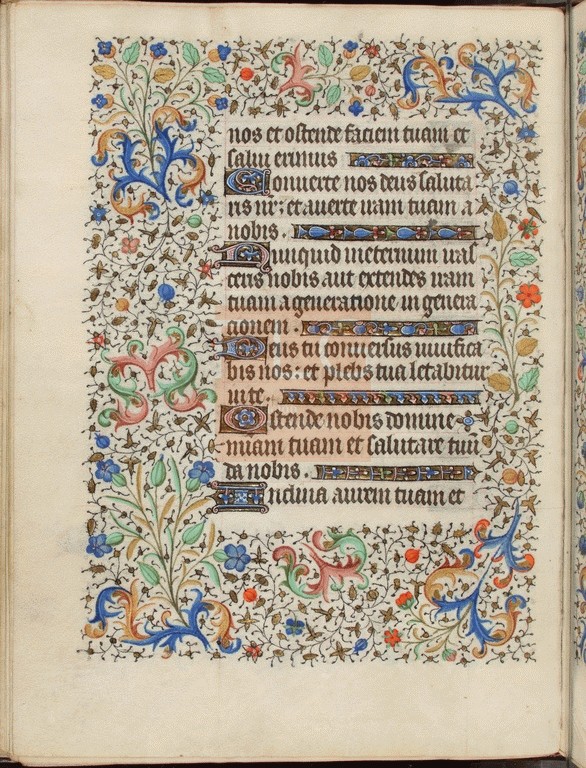 nos et ostende faciem tuam et
salui erimus
Conuerte nos deus saluta
ris nr̄: et auerte iram tuam a
nobis.
Nunquid ineternum iras
ceris nobis aut extendes iram
tuam a generatione in genera
cionem.
Deus tu conuersus uiuifica
bis nos: et plebs tua letabitur
in te.
Ostende nobis domine
miam tuam et salutare tuū
da nobis.
Inclina aurem tuam et